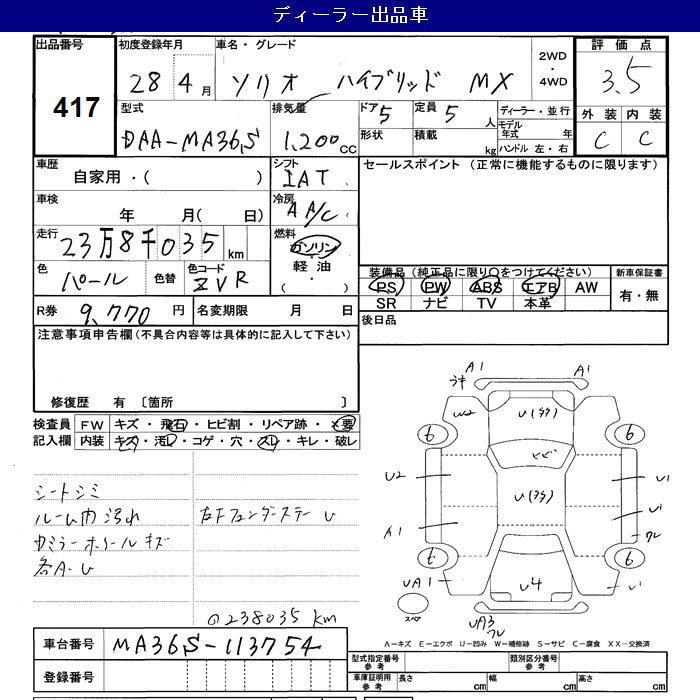 ディーラー出品車
出品番号 初度登録年月 車名・グレード 2WD 評価点
417 28 4月 ソリオ ハイブリッド MX 4WD 3.5
型式 排気量 ドア 5 定員 5人 ディーラー・並行 外装 内装
DAA-MA36S 1,200cc 形状 積載 kg モデル年式 年 C C
ハンドル 左・右
車歴 シフト セールスポイント (正常に機能するものに限ります)
自家用・( ) IAT
車検 冷房
年 月( 日) A A/C
走行 燃料
23万8千035km ガソリン・軽油・( )
色 色替 色コード 装備品 (純正品に限り○をつけてください) 新車保証書
パール ZVR PS PW ABS エアB AW 有・無
SR ナビ TV 本革
R券 9,770円 名変期限 月 日 後日品
注意事項申告欄 (不具合内容等は具体的に記入して下さい)
修復歴 有 〔箇所 〕
検査員 FW キズ・飛石・ヒビ割・リペア跡・×要
記入欄 内装 キズ・汚レ・コゲ・穴・スレ・キレ・破レ
シートシミ
ルーム内汚れ 右Fフェンダーステー U
各A・U
238035 km
A1 A1
ウキ
W2 U(多)
6 6
ヒビ
U2 U1
U(多)
U1
A1 ワレ
6 6
UA1 U4 U1
スペア
UA3
ワレ
A=キズ E=エクボ U=凹み W=補修跡 S=サビ C=腐食 XX=交換済
車台番号 MA36S-113754
登録番号
型式指定番号 参考 類別区分番号 参考
車庫証明用 参考 長さ cm 幅 cm 高さ cm